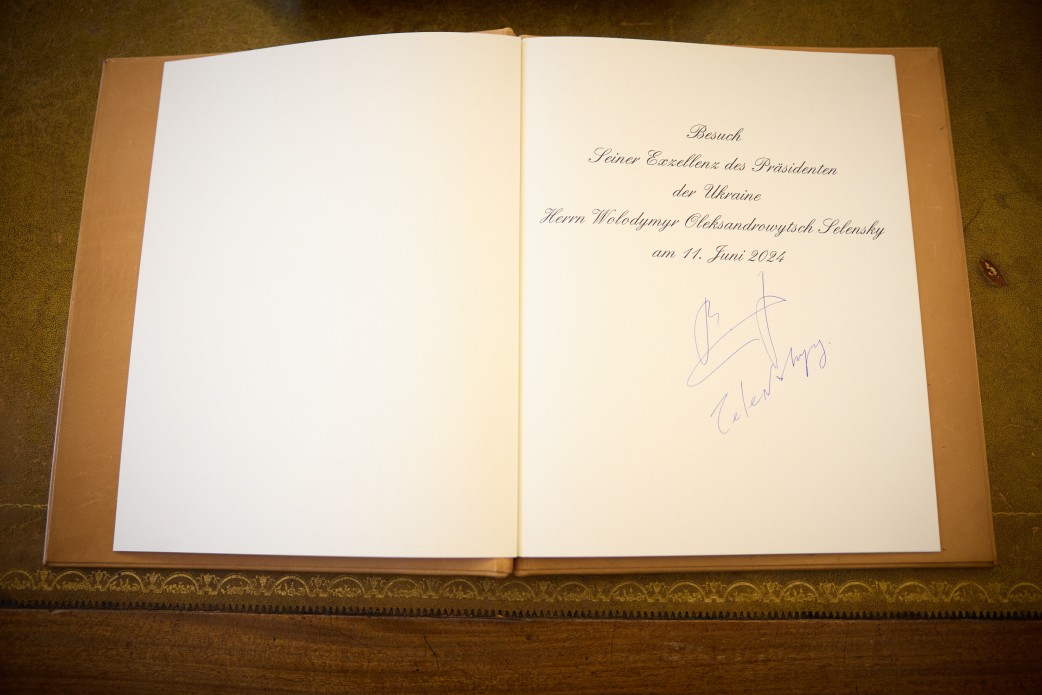 Besuch
Seiner Exzellenz des Präsidenten
der Ukraine
Herrn Wolodymyr Oleksandrowytsch Selensky
am 11. Juni 2024